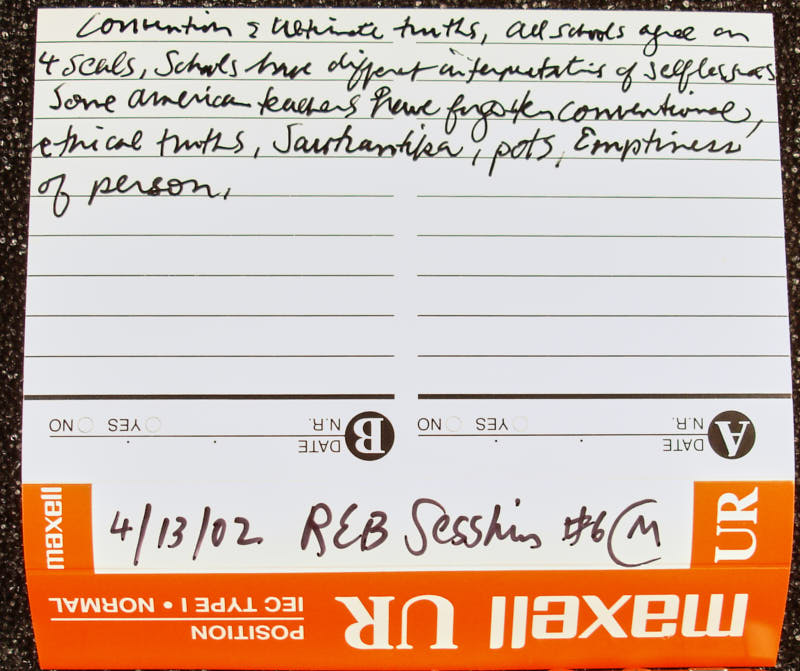 Convention & Ultimate truths, All schools agree on
4 seals, Schools have different interpretations of selflessness
Some american teachers have forgotten conventional,
ethical truths, Sautrantika, pots, Emptiness
of person.
A DATE N.R. YES NO
B DATE N.R. YES NO
maxell 4/13/02 REB Sesshin #6 M UR
maxell UR POSITION IEC TYPE I • NORMAL